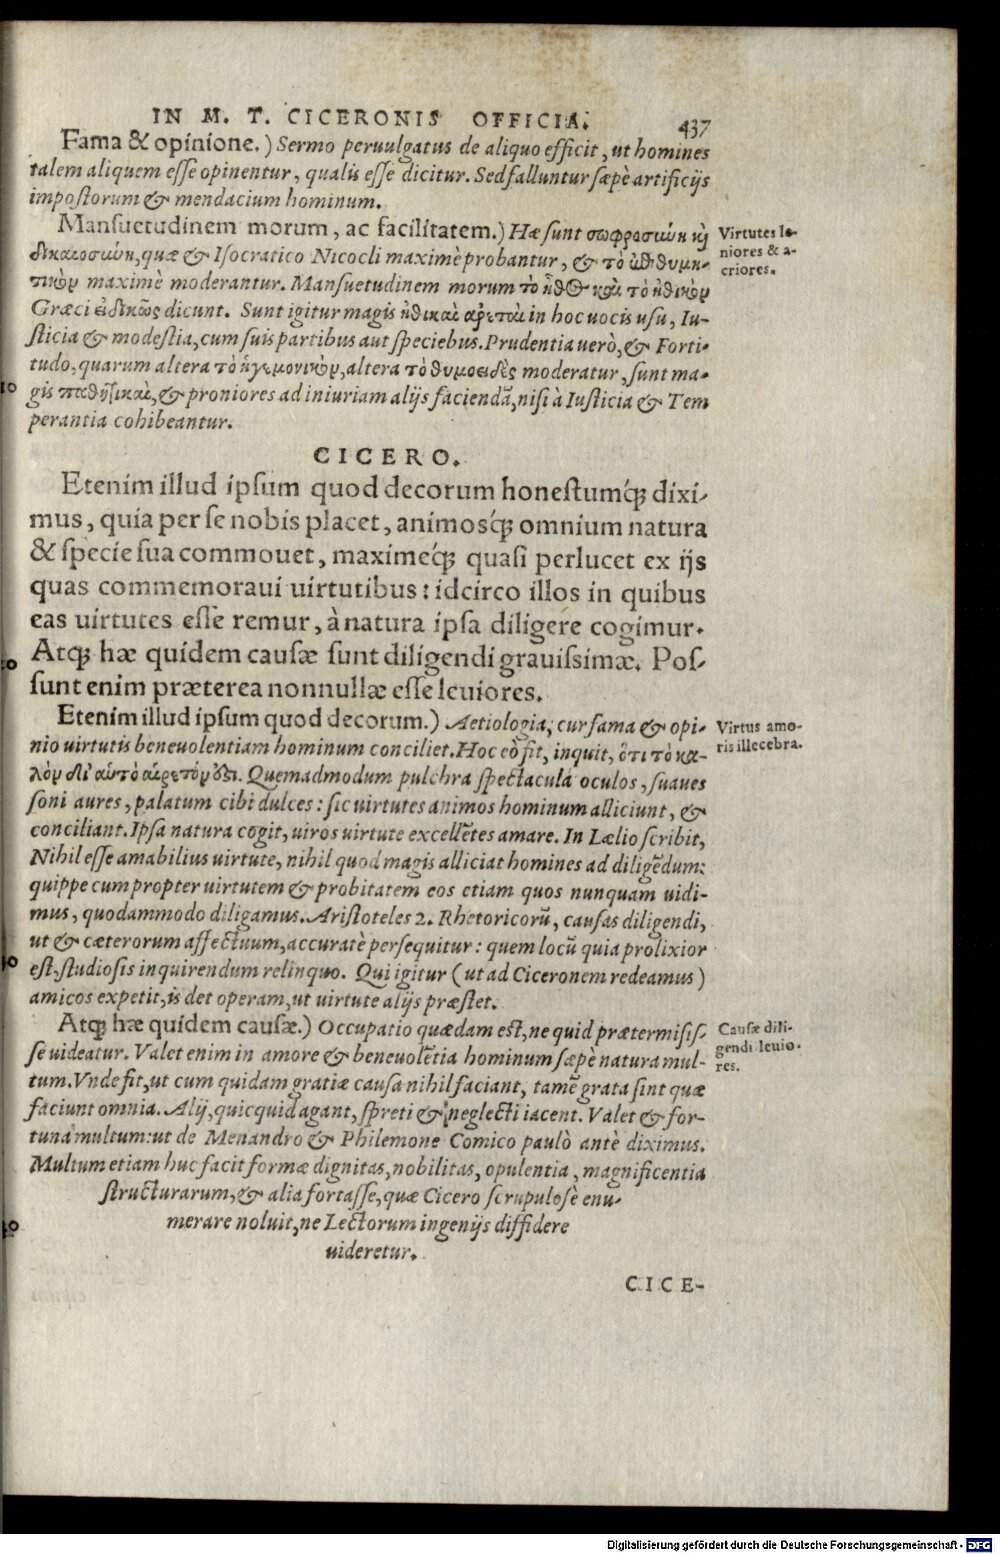 IN M. T. CICERONIS OFFICIA. 437
Fama & opinione.) Sermo peruulgatus de aliquo efficit, ut homines
talem aliquem esse opinentur, qualis esse dicitur. Sed falluntur sæpè artificijs
impostorum & mendacium hominum.
Mansuetudinem morum, ac facilitatem.) Hæ sunt σωφροσύνη καὶ
Virtutes le-
niores & a-
criores.
δικαιοσύνη, quæ & Isocratico Nicocli maximè probantur, & τὸ ἐπιθυμη-
τικὸν maximè moderantur. Mansuetudinem morum τὸ ἦθος καὶ τὸ ἠθικὸν
Græci εἰδικῶς dicunt. Sunt igitur magis ἠθικαὶ ἀρεταὶ in hoc uocis usu, Iu-
sticia & modestia, cum suis partibus aut speciebus. Prudentia uerò, & Forti-
tudo, quarum altera τὸ ἡγεμονικὸν, altera τὸ θυμοειδὲς moderatur, sunt ma-
10 gis παθητικαὶ, & proniores ad iniuriam alijs faciendā, nisi à Iusticia & Tem
perantia cohibeantur.
CICERO.
Etenim illud ipsum quod decorum honestumq́; dixi-
mus, quia per se nobis placet, animosq́; omnium natura
& specie sua commouet, maximeq́; quasi perlucet ex ijs
quas commemoraui uirtutibus: idcirco illos in quibus
eas uirtutes esse remur, à natura ipsa diligere cogimur.
20 Atq; hæ quidem causæ sunt diligendi grauissimæ. Pos-
sunt enim præterea nonnullæ esse leuiores.
Etenim illud ipsum quod decorum.) Aetiologia, cur fama & opi-
Virtus amo-
ris illecebra.
nio uirtutis beneuolentiam hominum conciliet. Hoc eò fit, inquit, ὅτι τὸ κα-
λὸν δι' αὑτὸ αἱρετόν ἐστι. Quemadmodum pulchra spectacula oculos, suaues
soni aures, palatum cibi dulces: sic uirtutes animos hominum alliciunt, &
conciliant. Ipsa natura cogit, uiros uirtute excellētes amare. In Lælio scribit,
Nihil esse amabilius uirtute, nihil quod magis alliciat homines ad diligēdum:
quippe cum propter uirtutem & probitatem eos etiam quos nunquam uidi-
mus, quodammodo diligamus. Aristoteles 2. Rhetoricorū, causas diligendi,
ut & cæterorum affectuum, accuratè persequitur: quem locū quia prolixior
30 est, studiosis inquirendum relinquo. Qui igitur (ut ad Ciceronem redeamus)
amicos expetit, is det operam, ut uirtute alijs præstet.
Atq; hæ quidem causæ.) Occupatio quædam est, ne quid prætermisis-
Causæ dili-
gendi leuio-
res.
se uideatur. Valet enim in amore & beneuolētia hominum sæpè natura mul-
tum. Vnde fit, ut cum quidam gratiæ causa nihil faciant, tamē grata sint quæ
faciunt omnia. Alij, quicquid agant, spreti & neglecti iacent. Valet & for-
tuna multum: ut de Menandro & Philemone Comico paulò antè diximus.
Multum etiam huc facit formæ dignitas, nobilitas, opulentia, magnificentia
structurarum, & alia fortasse, quæ Cicero scrupulosè enu-
40 merare noluit, ne Lectorum ingenijs diffidere
uideretur.
CICE-
Digitalisierung gefördert durch die Deutsche Forschungsgemeinschaft - DFG